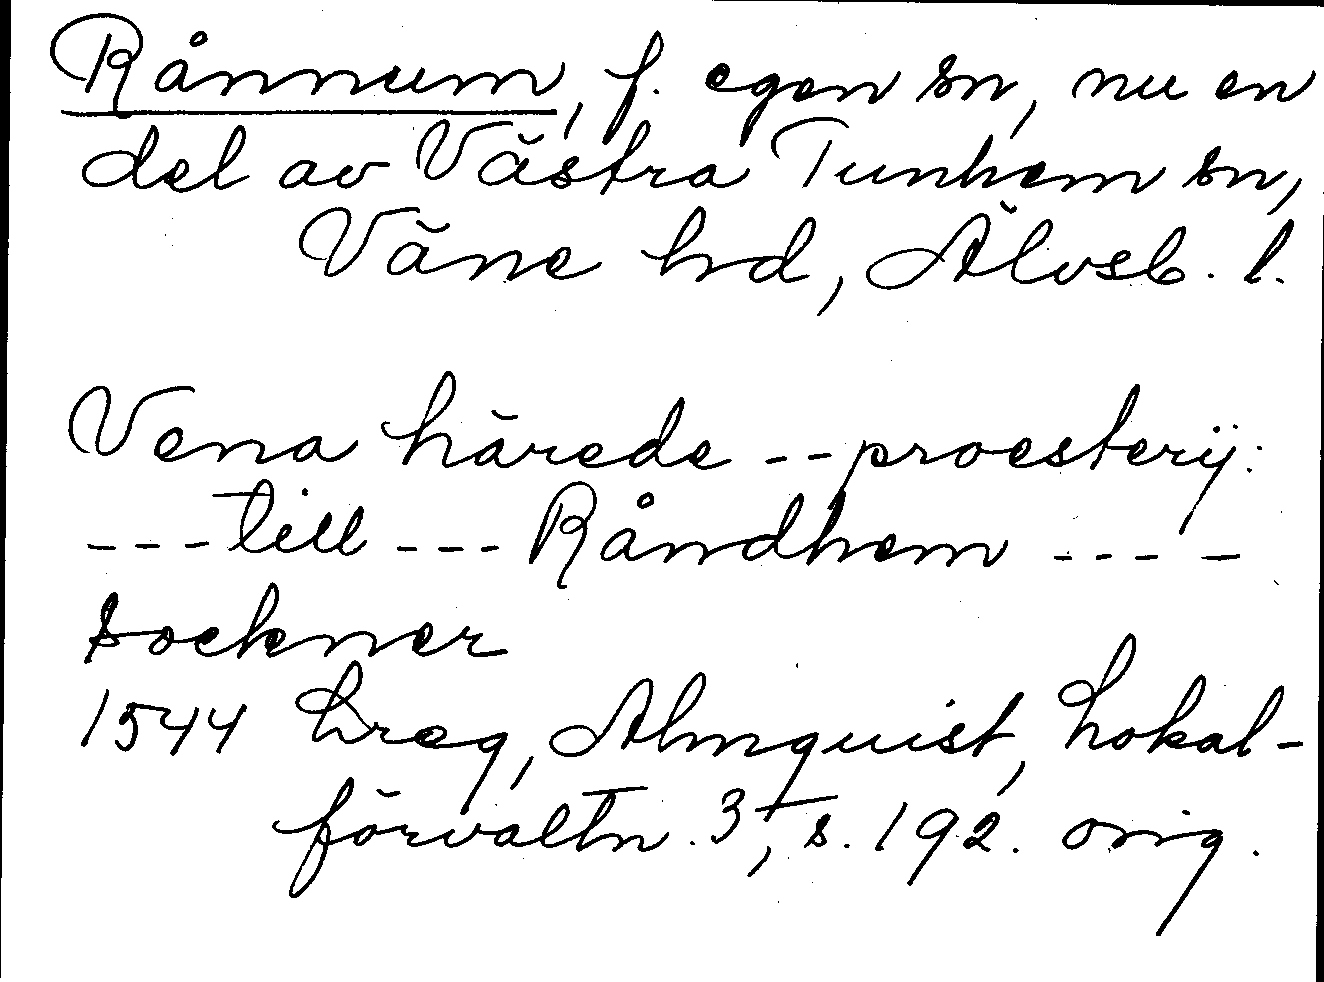 Rånnum, f. egen sn, nu en
del av Västra Tunhem sn,
Väne hd, Älvsb. l.
Vena härede -- proesterij:
--- till --- Råndhem ----
sockner
1544 Lreg, Almquist, Lokal-
förvaltn. 3, s. 192. orig.